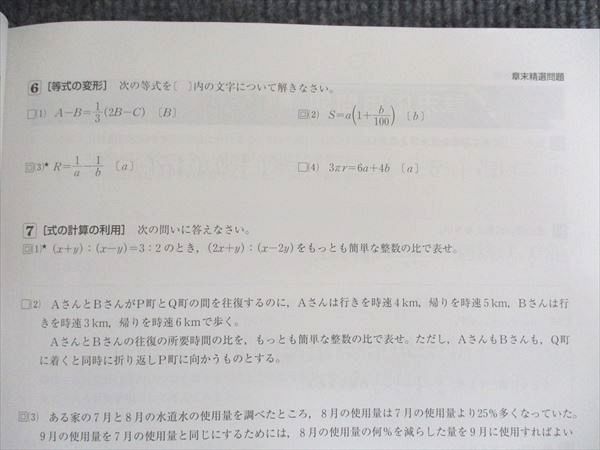 章末精選問題
6 [等式の変形] 次の等式を〔 〕内の文字について解きなさい。
(1) A−B=1/3(2B−C) 〔B〕
(2) S=a(1+b/100) 〔b〕
(3)* R=1/a−1/b 〔a〕
(4) 3πr=6a+4b 〔a〕
7 [式の計算の利用] 次の問いに答えなさい。
(1)* (x+y):(x−y)=3:2のとき，(2x+y):(x−2y)をもっとも簡単な整数の比で表せ。
(2) AさんとBさんがP町とQ町の間を往復するのに，Aさんは行きを時速4km，帰りを時速5km，Bさんは行
きを時速3km，帰りを時速6kmで歩く。
AさんとBさんの往復の所要時間の比を，もっとも簡単な整数の比で表せ。ただし，AさんもBさんも，Q町
に着くと同時に折り返しP町に向かうものとする。
(3) ある家の7月と8月の水道水の使用量を調べたところ，8月の使用量は7月の使用量より25%多くなっていた。
9月の使用量を7月の使用量と同じにするためには，8月の使用量の何%を減らした量を9月に使用すればよい